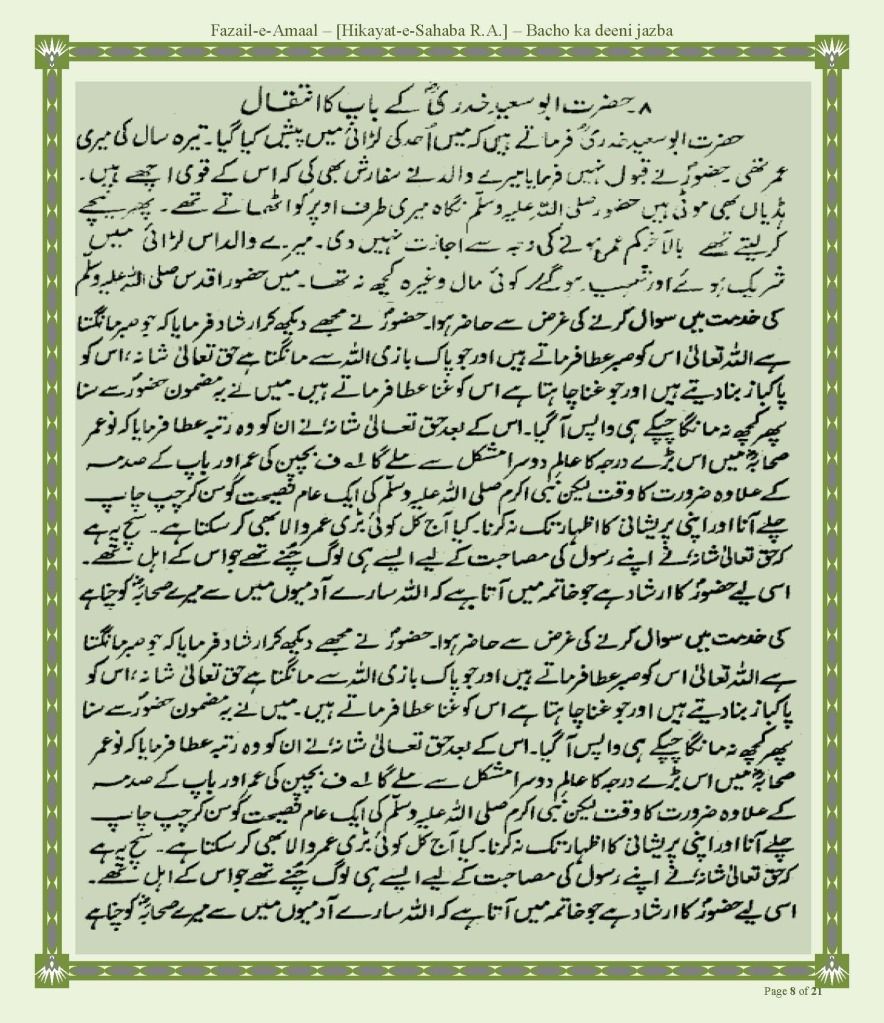 Fazail-e-Amaal – [Hikayat-e-Sahaba R.A.] – Bacho ka deeni jazba
۸۔حضرت ابوسعید خدریؓ کے باپ کا انتقال
حضرت ابوسعید خدریؓ فرماتے ہیں کہ میں اُحد کی لڑائی میں پیش کیا گیا۔ تیرہ سال کی میری
عمر تھی۔ حضورؐ نے قبول نہیں فرمایا میرے والد نے سفارش بھی کی کہ اس کے قویٰ اچھے ہیں۔
ہڈیاں بھی موٹی ہیں حضور صلی اللہ علیہ وسلم نگاہ میری طرف اوپر کو اٹھاتے تھے۔ پھر نیچے
کر لیتے تھے بالآخر کم عمر ہونے کی وجہ سے اجازت نہیں دی۔ میرے والد اس لڑائی میں
شریک ہوئے اور شہید ہوگئے کوئی مال وغیرہ کچھ نہ تھا۔ میں حضور اقدس صلی اللہ علیہ وسلم
کی خدمت میں سوال کرنے کی غرض سے حاضر ہوا۔ حضورؐ نے مجھے دیکھ کر ارشاد فرمایا کہ جو صبر مانگتا
ہے اللہ تعالیٰ اس کو صبر عطا فرماتے ہیں اور جو پاک بازی اللہ سے مانگتا ہے حق تعالیٰ شانہٗ اس کو
پاکباز بنا دیتے ہیں اور جو غنا چاہتا ہے اس کو غنا عطا فرماتے ہیں۔ میں نے یہ مضمون حضورؐ سے سنا
پھر کچھ نہ مانگا چپکے ہی واپس آ گیا۔ اس کے بعد حق تعالیٰ شانہٗ نے ان کو وہ رتبہ عطا فرمایا کہ نو عمر
صحابہؓ میں اس بڑے درجہ کا عالم دوسرا مشکل سے ملے گا لہ ف بچپن کی عمر اور باپ کے صدمہ
کے علاوہ ضرورت کا وقت لیکن نبی اکرم صلی اللہ علیہ وسلم کی ایک عام نصیحت کو سن کر چپ چاپ
چلے آنا اور اپنی پریشانی کا اظہار تک نہ کرنا۔ کیا آج کل کوئی بڑی عمر والا بھی کر سکتا ہے۔ سچ یہ ہے
کہ حق تعالیٰ شانہٗ نے اپنے رسول کی مصاحبت کے لیے ایسے ہی لوگ چنے تھے جو اس کے اہل تھے۔
اسی لیے حضورؐ کا ارشاد ہے جو خاتمہ میں آتا ہے کہ اللہ سارے آدمیوں میں سے میرے صحابہؓ کو چنا ہے
کی خدمت میں سوال کرنے کی غرض سے حاضر ہوا۔ حضورؐ نے مجھے دیکھ کر ارشاد فرمایا کہ جو صبر مانگتا
ہے اللہ تعالیٰ اس کو صبر عطا فرماتے ہیں اور جو پاک بازی اللہ سے مانگتا ہے حق تعالیٰ شانہٗ اس کو
پاکباز بنا دیتے ہیں اور جو غنا چاہتا ہے اس کو غنا عطا فرماتے ہیں۔ میں نے یہ مضمون حضورؐ سے سنا
پھر کچھ نہ مانگا چپکے ہی واپس آ گیا۔ اس کے بعد حق تعالیٰ شانہٗ نے ان کو وہ رتبہ عطا فرمایا کہ نو عمر
صحابہؓ میں اس بڑے درجہ کا عالم دوسرا مشکل سے ملے گا لہ ف بچپن کی عمر اور باپ کے صدمہ
کے علاوہ ضرورت کا وقت لیکن نبی اکرم صلی اللہ علیہ وسلم کی ایک عام نصیحت کو سن کر چپ چاپ
چلے آنا اور اپنی پریشانی کا اظہار تک نہ کرنا۔ کیا آج کل کوئی بڑی عمر والا بھی کر سکتا ہے۔ سچ یہ ہے
کہ حق تعالیٰ شانہٗ نے اپنے رسول کی مصاحبت کے لیے ایسے ہی لوگ چنے تھے جو اس کے اہل تھے۔
اسی لیے حضورؐ کا ارشاد ہے جو خاتمہ میں آتا ہے کہ اللہ سارے آدمیوں میں سے میرے صحابہؓ کو چنا ہے
Page 8 of 21